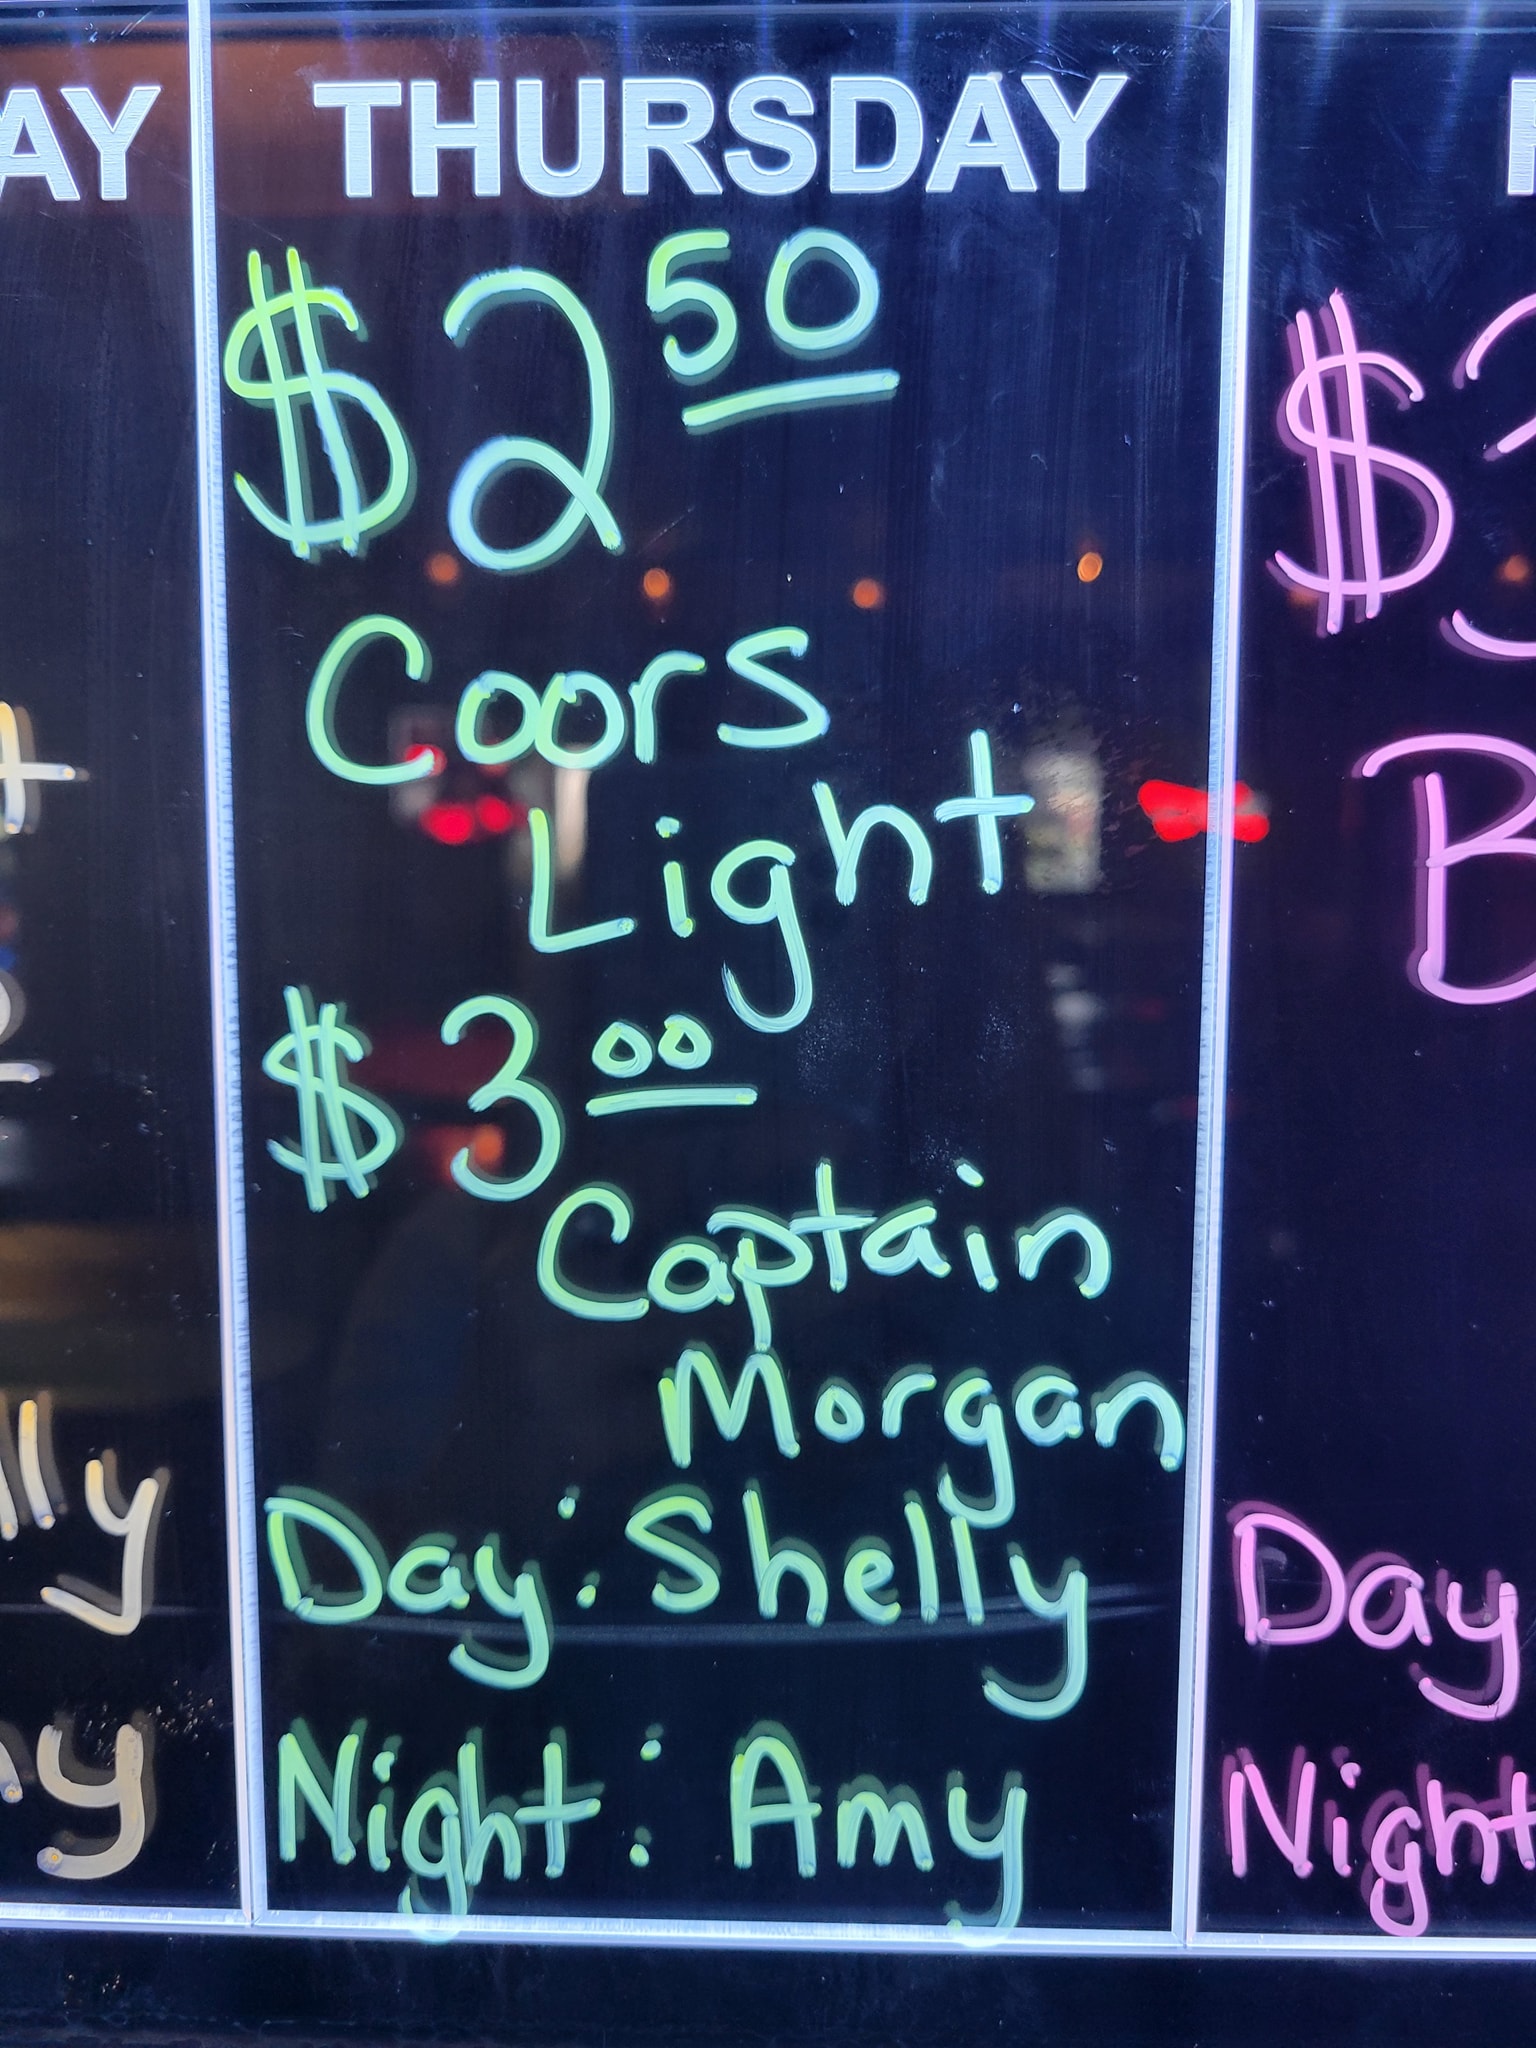 THURSDAY
$2.50
Coors
Light
$3.00
Captain
Morgan
Day: Shelly
Night: Amy
Day
Night